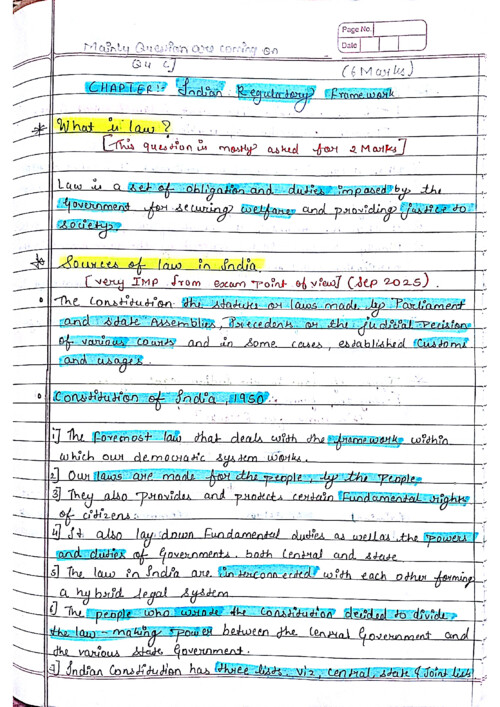 Page No.
Date
Mainly Question are coming on
Qu 4]
(6 Marks)
CHAPTER:- Indian Regulatory framework
* What is law?
[This question is mostly asked for 2 Marks]
Law is a set of obligation and duties imposed by the
Government for securing welfare and providing justice to
society.
* Sources of law in India.
[very IMP from exam point of view] (Sep 2025).
The Constitution the statutes or laws made by Parliament
and state Assemblies, Precedents or the judicial Decision
of various courts and in some cases, established Customs
and usages.
Constitution of India, 1950:
1] The foremost law that deals with the framework within
which our democratic system works.
2] Our laws are made for the people, by the people
3] They also provides and protects certain fundamental rights
of citizens.
4] It also lay down Fundamental duties as well as the powers
and duties of Governments. both Central and state
5] The law in India are interconnected with each other forming
a hybrid legal system
6] The people who wrote the constitution decided to divide
the law-making power between the Central Government and
the various State Government.
7] Indian Constitution has three lists. viz, central, state & Joint lists